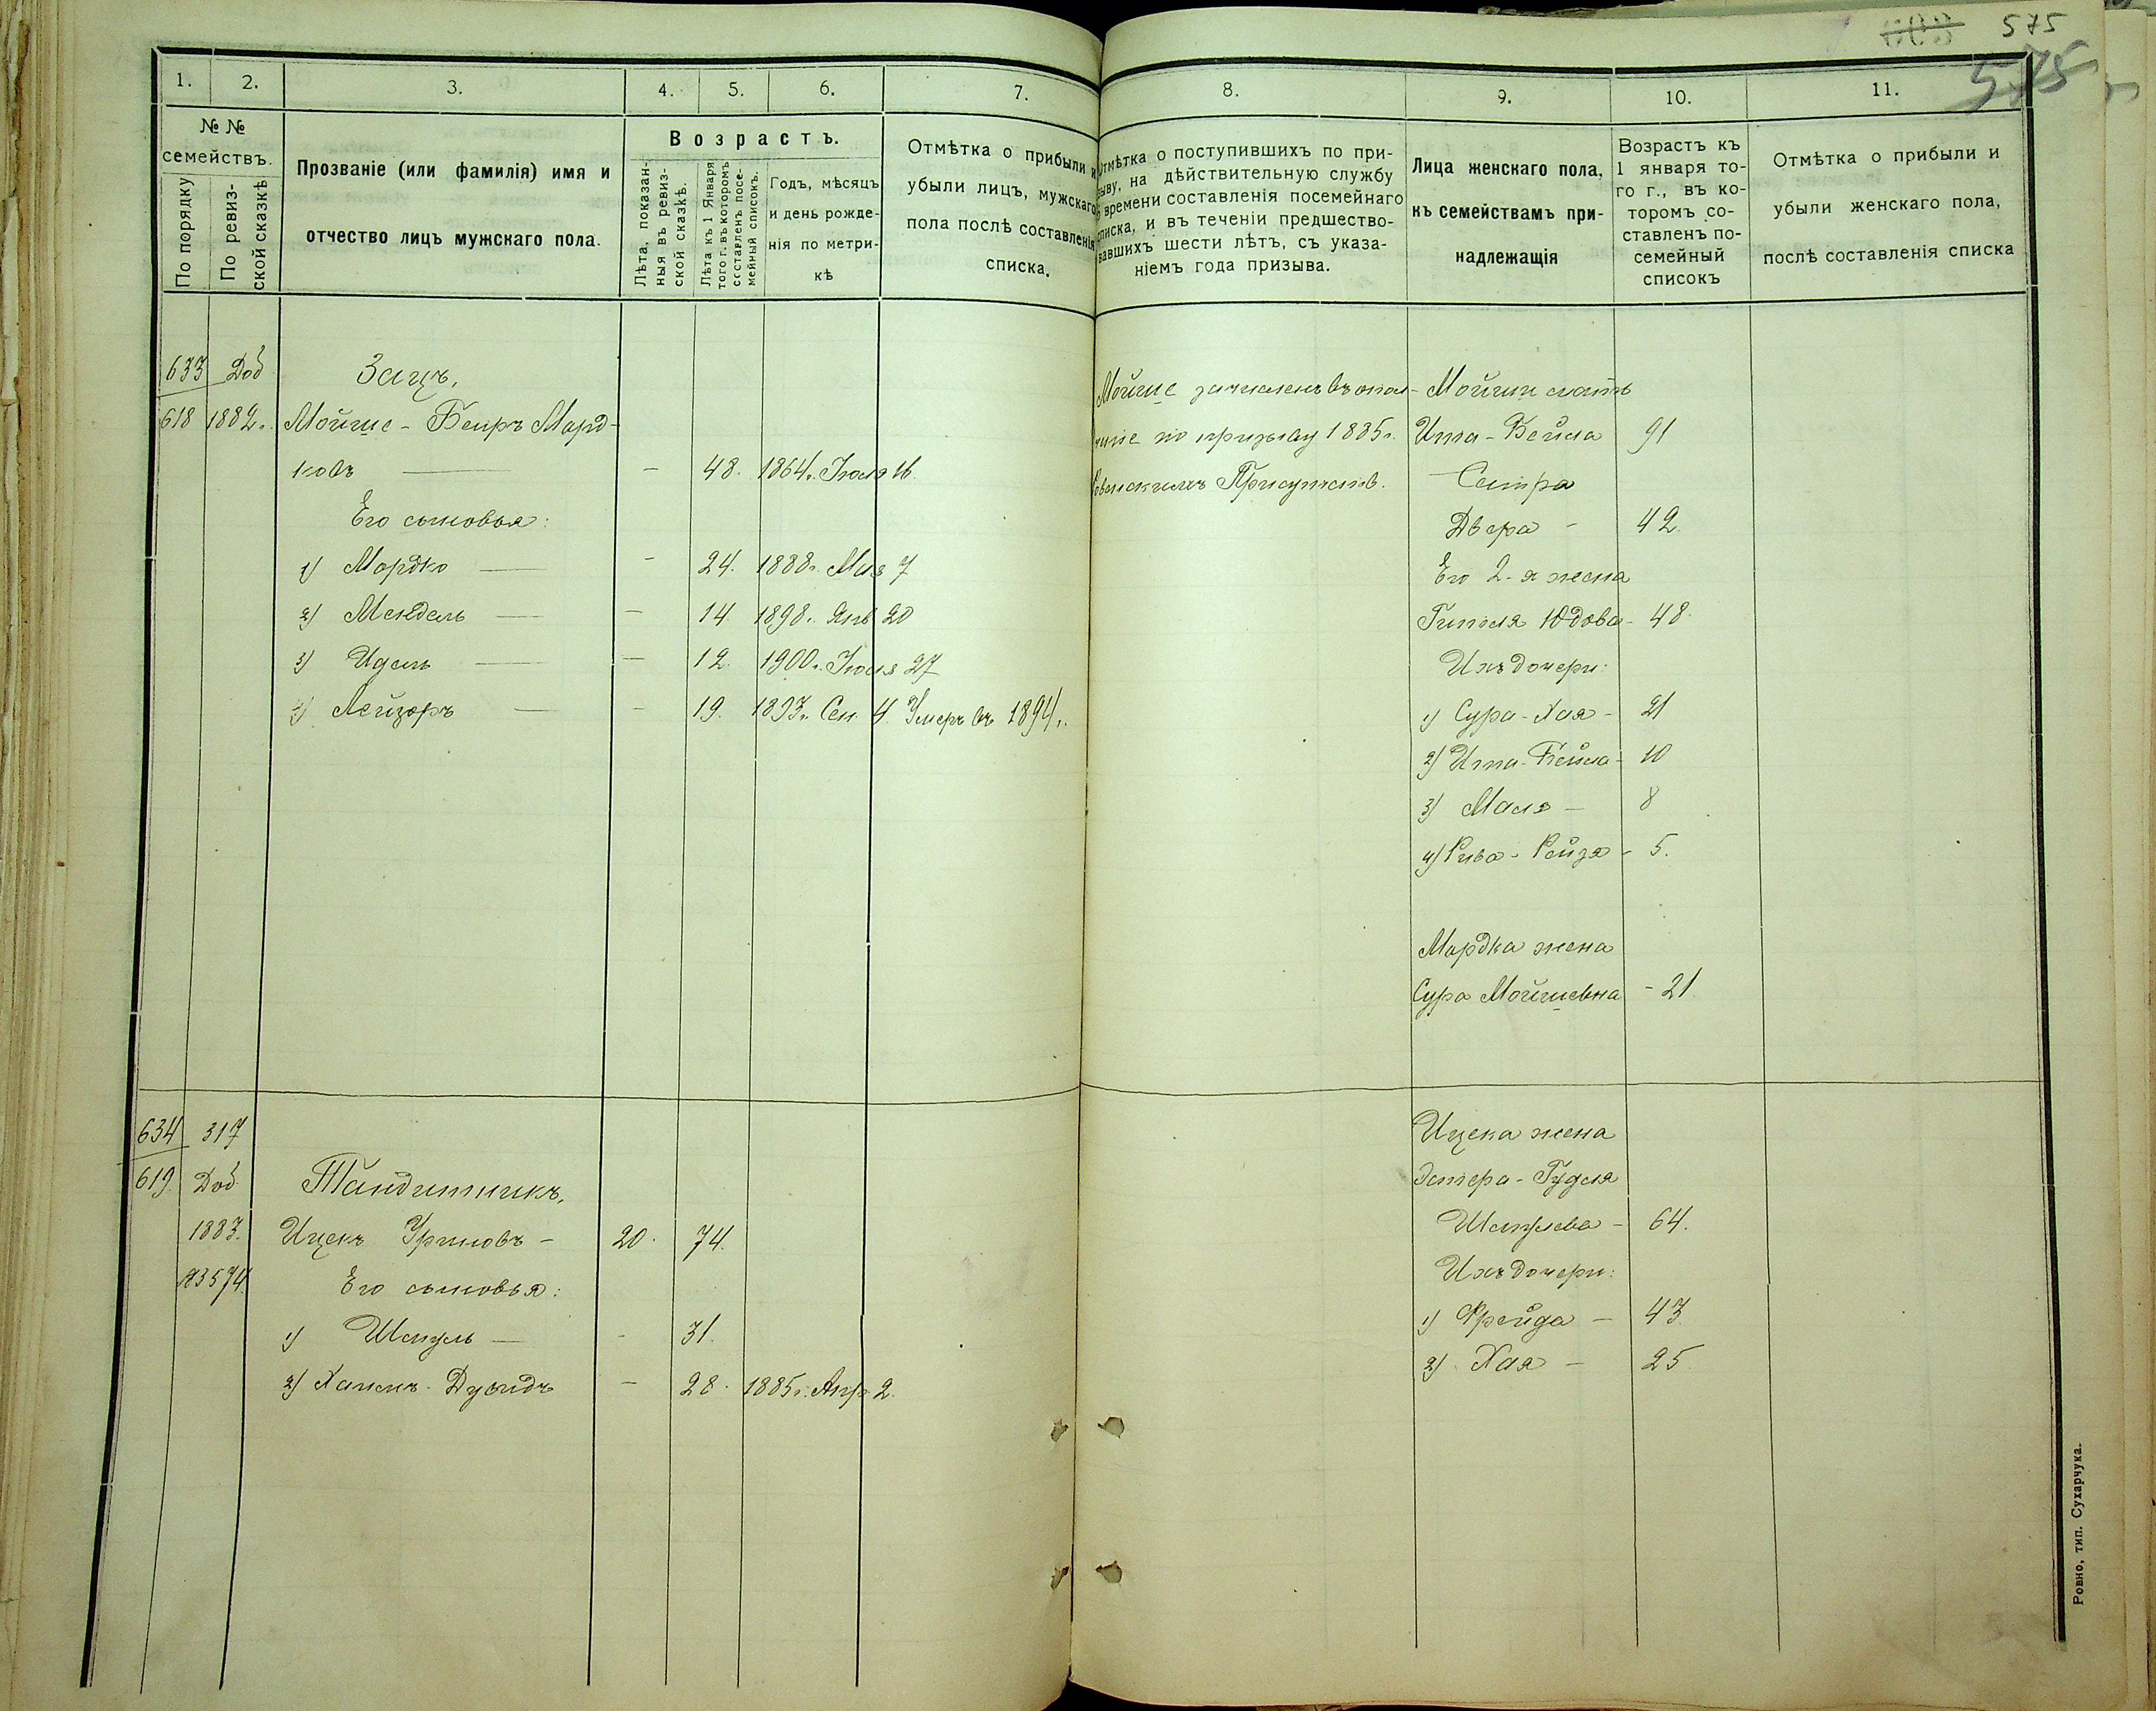 575
575
1.
2.
3.
4.
5.
6.
7.
8.
9.
10.
11.
№ №
семействъ.
По порядку
По ревиз-
ской сказкѣ
Прозваніе (или фамилія) имя и
отчество лицъ мужскаго пола.
Возрастъ.
Лѣта, показан-
ныя въ ревиз-
ской сказкѣ.
Лѣта къ 1 Января
того г. въ которомъ
составленъ посе-
мейный списокъ.
Годъ, мѣсяцъ
и день рожде-
нія по метри-
кѣ
Отмѣтка о прибыли и
убыли лицъ, мужскаго
пола послѣ составленія
списка.
Отмѣтка о поступившихъ по при-
зыву, на дѣйствительную службу
времени составленія посемейнаго
списка, и въ теченіи предшество-
вавшихъ шести лѣтъ, съ указа-
ніемъ года призыва.
Лица женскаго пола,
къ семействамъ при-
надлежащія
Возрастъ къ
1 января то-
го г., въ ко-
торомъ со-
ставленъ по-
семейный
списокъ
Отмѣтка о прибыли и
убыли женскаго пола,
послѣ составленія списка
633 Доб
618 1882.
Зацъ,
Мойше-Беиръ Морд-
ковъ — — 48. 1864. Іюля 16.
Его сыновья:
1) Мордко — — 24. 1888г. Мая 7
2) Мендель — — 14. 1898. Янв 20
3) Идель — — 12. 1900г. Іюля 27
4) Лейзоръ — — 19. 1893г. Сен. 4. Умеръ въ 1894г.
Мойше зачисленъ въ опол-
ченіе по призыву 1885г.
Ровенскимъ Присутств.
Мойши мать
Ита-Бейла 91
Сестра
Двера - 42.
Его 2-я жена
Гитля Юдова - 48.
Ихъ дочери:
1) Сура-Хая - 21
2) Ита-Бейла - 10
3) Маля - 8
4) Рива-Рейзя - 5.
Мордка жена
Сура Мойшевна - 21.
634 317
619. Доб
1883.
№3574.
Тандитникъ,
Ицекъ Уриновъ - 20. 74.
Его сыновья:
1) Шмуль — - 31.
2) Хаимъ-Дувидъ — 28. 1885г. Апр 2.
Ицека жена
Эстера-Гудся
Шмулева - 64.
Ихъ дочери:
1) Фрейда - 43.
2) Хая - 25
Ровно, тип. Сухарчука.